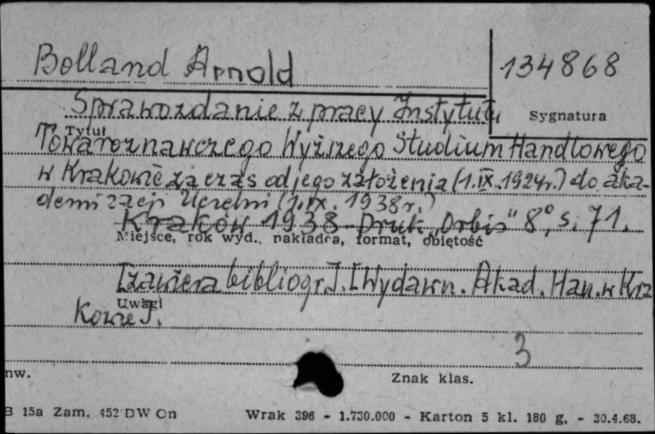 Bolland Arnold
134868
Sprawozdanie z pracy Instytutu
Sygnatura
Tytuł
Towaroznawczego Wyższego Studium Handlowego
w Krakowie za czas od jego założenia (1.IX.1924r.) do aka-
demizacji Uczelni (1.IX.1938r.)
Kraków 1938 Druk „Orbis" 8°, s. 71.
Miejsce, rok wyd., nakładca, format, objętość
[zawiera bibliogr.]. [Wydawn. Akad. Han. w Kra
Uwagi
kowie].
3
nw.
Znak klas.
B 15a Zam. 452 DW On Wrak 396 - 1.730.000 - Karton 5 kl. 180 g. - 30.4.68.